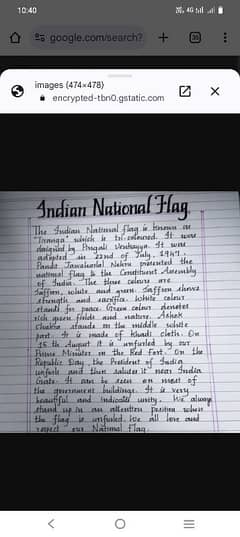 10:40
4G
google.com/search?
35
images (474×478)
encrypted-tbn0.gstatic.com
Indian National Flag
The Indian National flag is known as
"Tiranga" which is tri-coloured. It was
designed by Pingali Venkayya. It was
adopted in 22nd of July, 1947.
Pandit Jawaharlal Nehru presented the
national flag to the Constituent Assembly
of India. The three colours are
Saffron, white and green. Saffron shows
strength and sacrifice. White colour
stands for peace. Green colour denotes
rich green fields and nature. Ashok
Chakra stands in the middle white
part. It is made of Khadi cloth. On
15 th August it is unfurled by our
Prime Minister on the Red Fort. On the
Republic Day, the President of India
unfurls and then salutes it near India
Gate. It can be seen on most of
the government buildings. It is very
beautiful and indicates unity. We always
stand up in an attention position when
the flag is unfurled. We all love and
respect our National Flag.